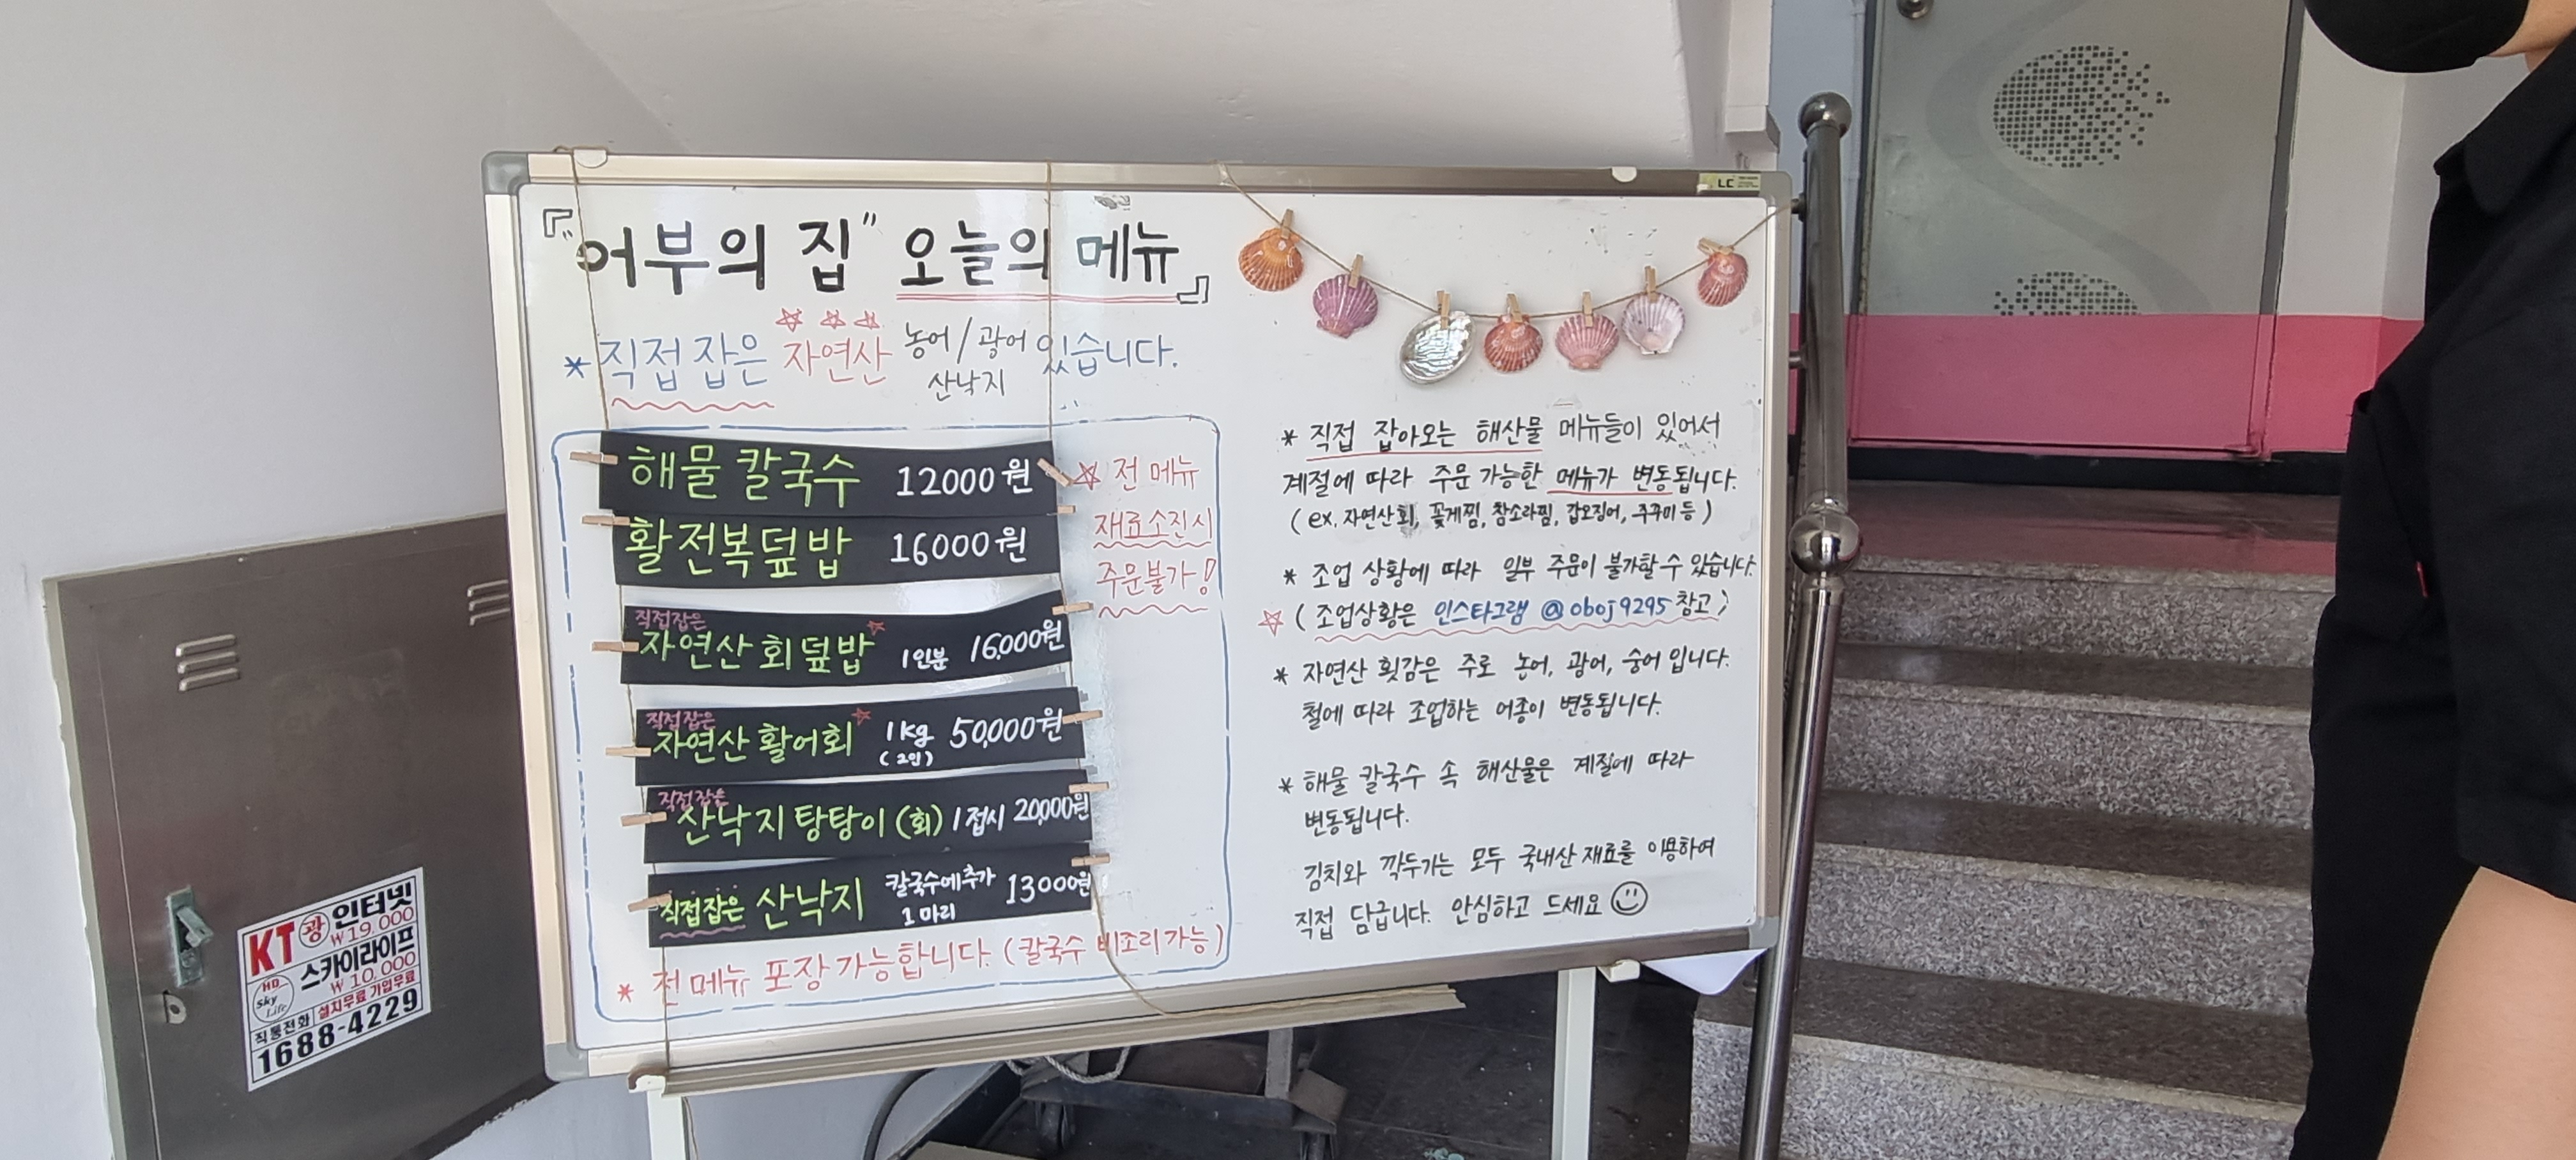 『"어부의 집" 오늘의 메뉴』
* 직접 잡은 자연산 농어/광어 있습니다.
산낙지
해물 칼국수 12000원
활전복덮밥 16000원
직접잡은
자연산 회덮밥 1인분 16,000원
직접잡은
자연산 활어회 1kg 50,000원
(2인)
직접잡은
산낙지탕탕이(회) 1접시 20,000원
직접잡은 산낙지 칼국수에추가 13000원
1마리
☆ 전 메뉴
재료소진시
주문불가!
* 전 메뉴 포장 가능합니다. (칼국수 비조리가능)
* 직접 잡아오는 해산물 메뉴들이 있어서
계절에 따라 주문 가능한 메뉴가 변동됩니다.
(ex. 자연산회, 꽃게찜, 참소라찜, 갑오징어, 주꾸미 등)
* 조업 상황에 따라 일부 주문이 불가할 수 있습니다.
☆ (조업상황은 인스타그램 @oboj9295 참고)
* 자연산 횟감은 주로 농어, 광어, 숭어 입니다.
철에 따라 조업하는 어종이 변동됩니다.
* 해물 칼국수 속 해산물은 계절에 따라
변동됩니다.
김치와 깍두기는 모두 국내산 재료를 이용하여
직접 담급니다. 안심하고 드세요
LC
KT 광 인터넷
₩19,000
스카이라이프
₩10,000
HD
Sky
Life
설치무료 가입무료
직통전화
1688-4229